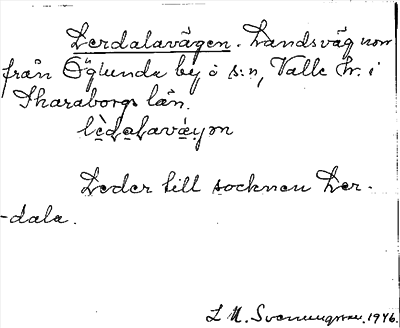 Lerdalavägen. Landsväg norr
från Öglunda by o s:n, Valle hr. i
Skaraborgs län.
lèdalavä́γm
Leder till socknen Ler-
-dala.
L M. Svenungsson. 1946.